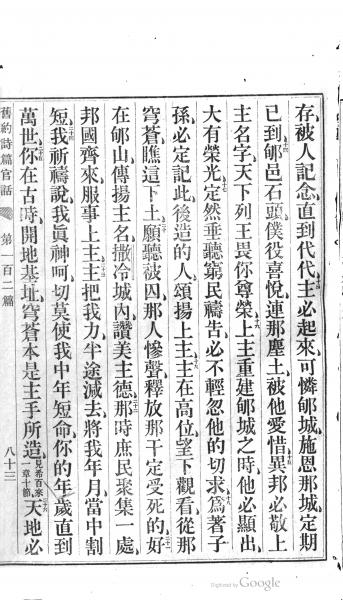 存、被人記念、直到代代、十三主必起來、可憐郇城、施恩那城、定期
已到、十四郇邑石頭、僕役喜悅、連那塵土、被他愛惜、十五異邦必敬上
主名字、天下列王、畏你尊榮、十六上主重建郇城之時、他必顯出
大有榮光、十七定然垂聽窮民禱告、必不輕忽他的切求、十八爲著子
孫、必定記此、後造的人、頌揚上主、十九主在高位、望下觀看、從那
穹蒼、瞧這下土、二十願聽被囚、那人慘聲、釋放那干定受死的、二十一好
在郇山、傳揚主名、撒冷城內、讚美主德、二十二那時庶民、聚集一處、
邦國齊來、服事上主、二十三主把我力、半途減去、將我年月、當中割
短、二十四我祈禱說、我眞神呵、切莫使我中年短命、你的年歲、直到
萬世、二十五你在古時、開地基址、穹蒼本是主手所造、見希百來一章十節、二十六天地必
舊約詩篇官話 第一百二篇 八十三
Digitized by Google